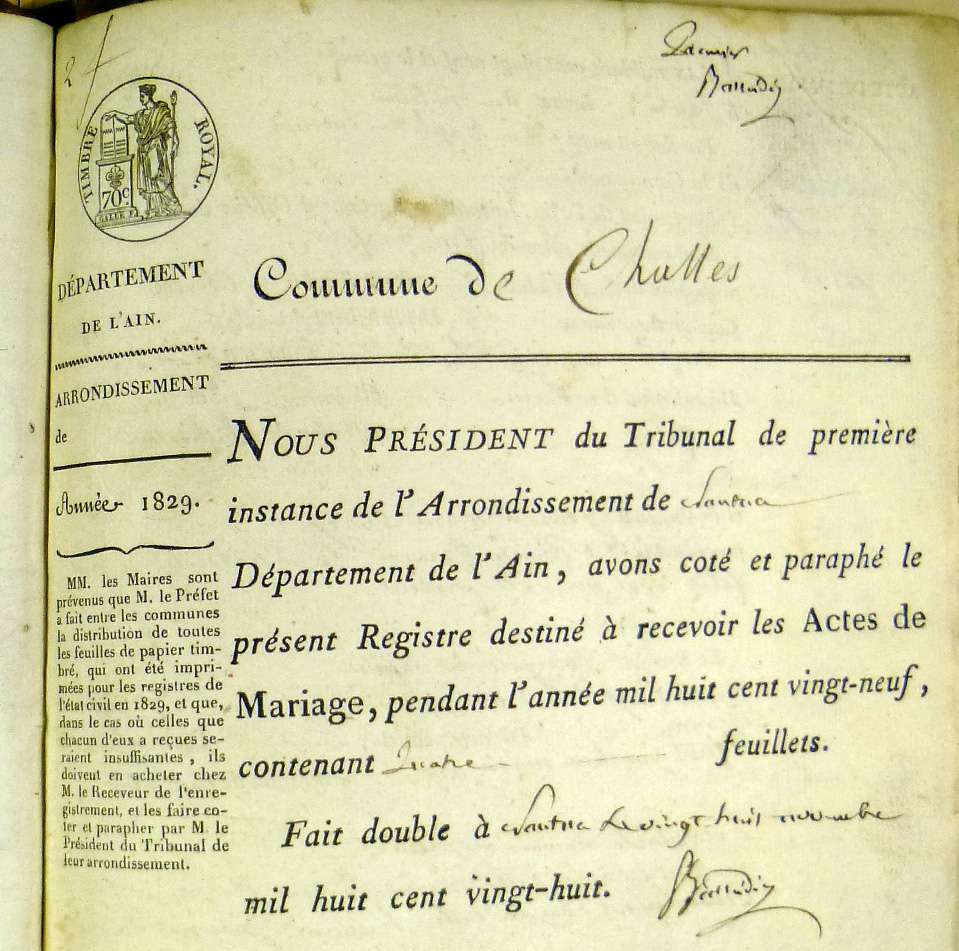 Premier
TIMBRE ROYAL.
70c
DÉPARTEMENT
DE L'AIN.
ARRONDISSEMENT
de
Année 1829.
MM. les Maires sont
prévenus que M. le Préfet
a fait entre les communes
la distribution de toutes
les feuilles de papier tim-
bré, qui ont été impri-
mées pour les registres de
l'état civil en 1829, et que,
dans le cas où celles que
chacun d'eux a reçues se-
raient insuffisantes, ils
doivent en acheter chez
M. le Receveur de l'enre-
gistrement, et les faire co-
ter et parapher par M. le
Président du Tribunal de
leur arrondissement.
Commune de Challes
NOUS PRÉSIDENT du Tribunal de première
instance de l'Arrondissement de Nantua
Département de l'Ain, avons coté et paraphé le
présent Registre destiné à recevoir les Actes de
Mariage, pendant l'année mil huit cent vingt-neuf,
contenant quatre feuillets.
Fait double à Nantua le vingt huit novembre
mil huit cent vingt-huit.